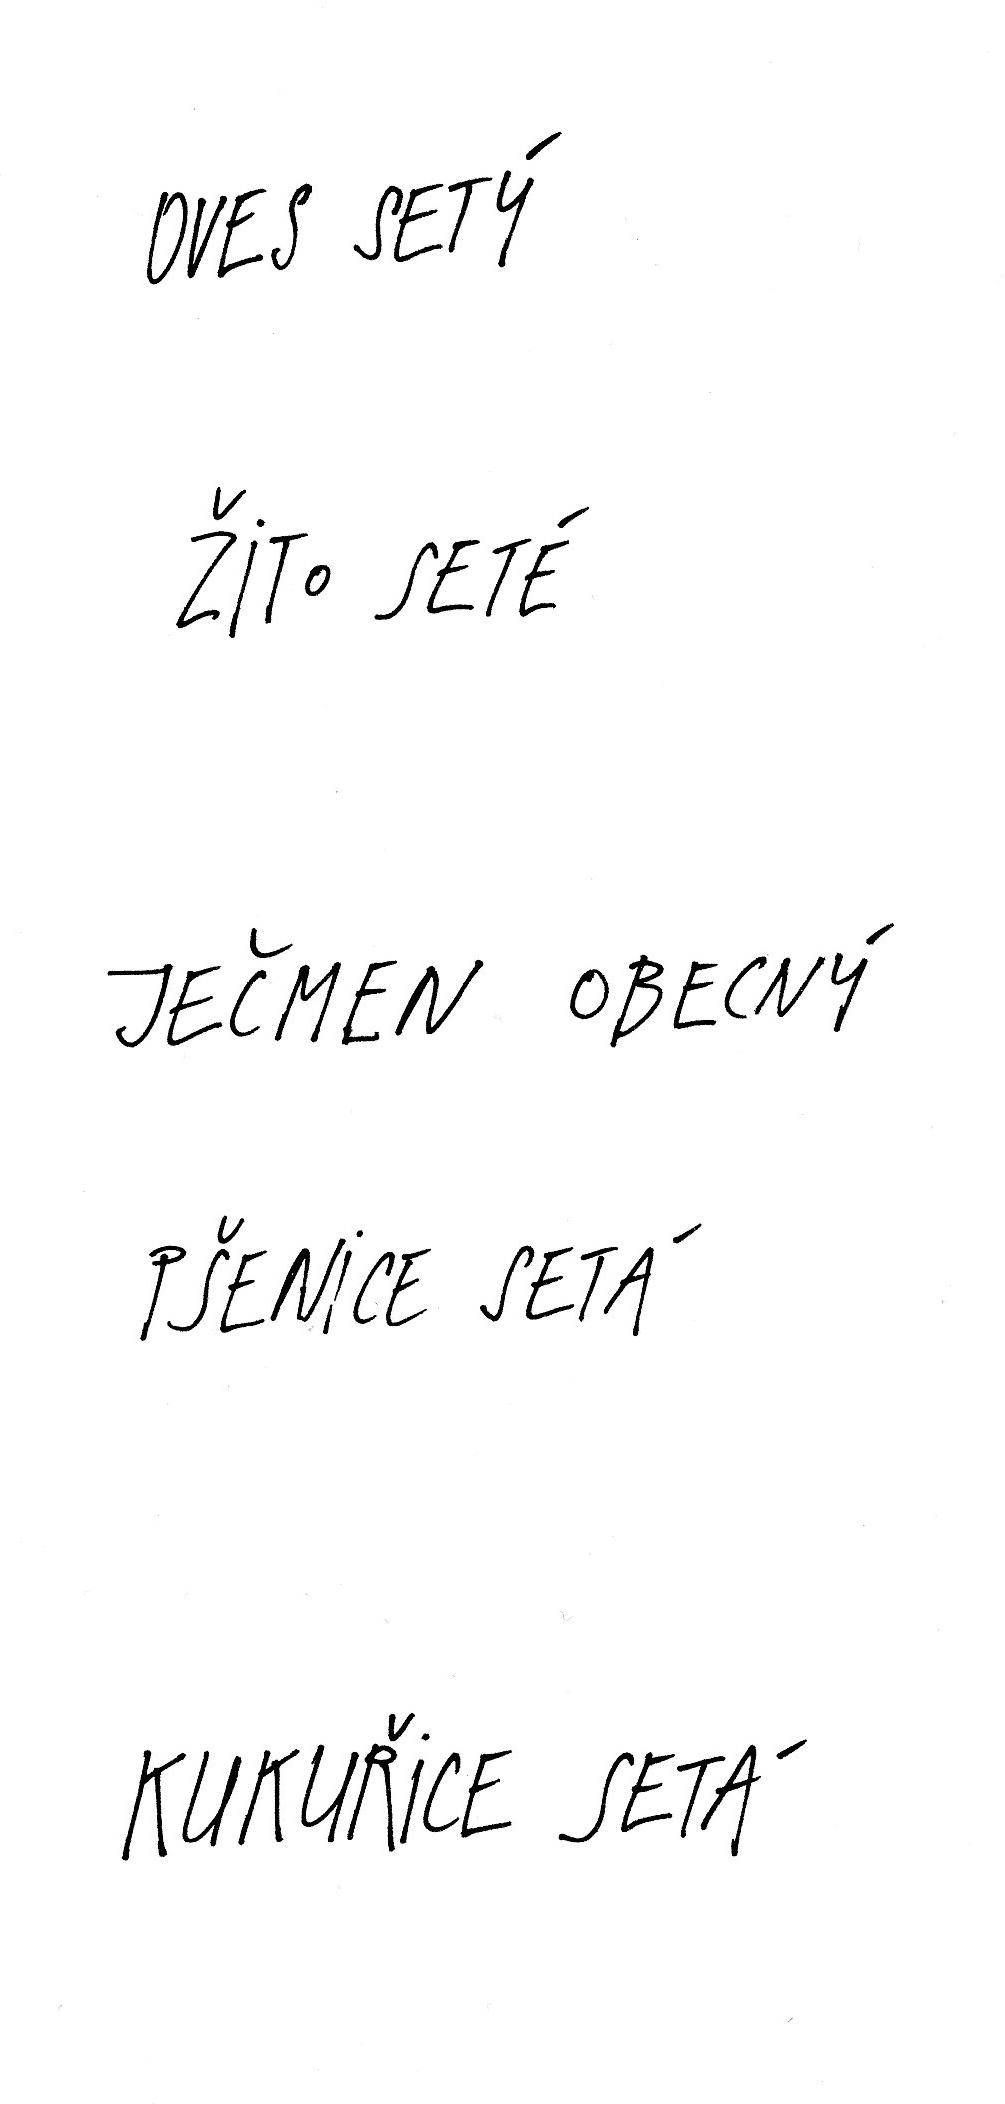 OVES SETÝ
ŽITO SETÉ
JEČMEN OBECNÝ
PŠENICE SETÁ
KUKUŘICE SETÁ